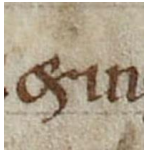 & in